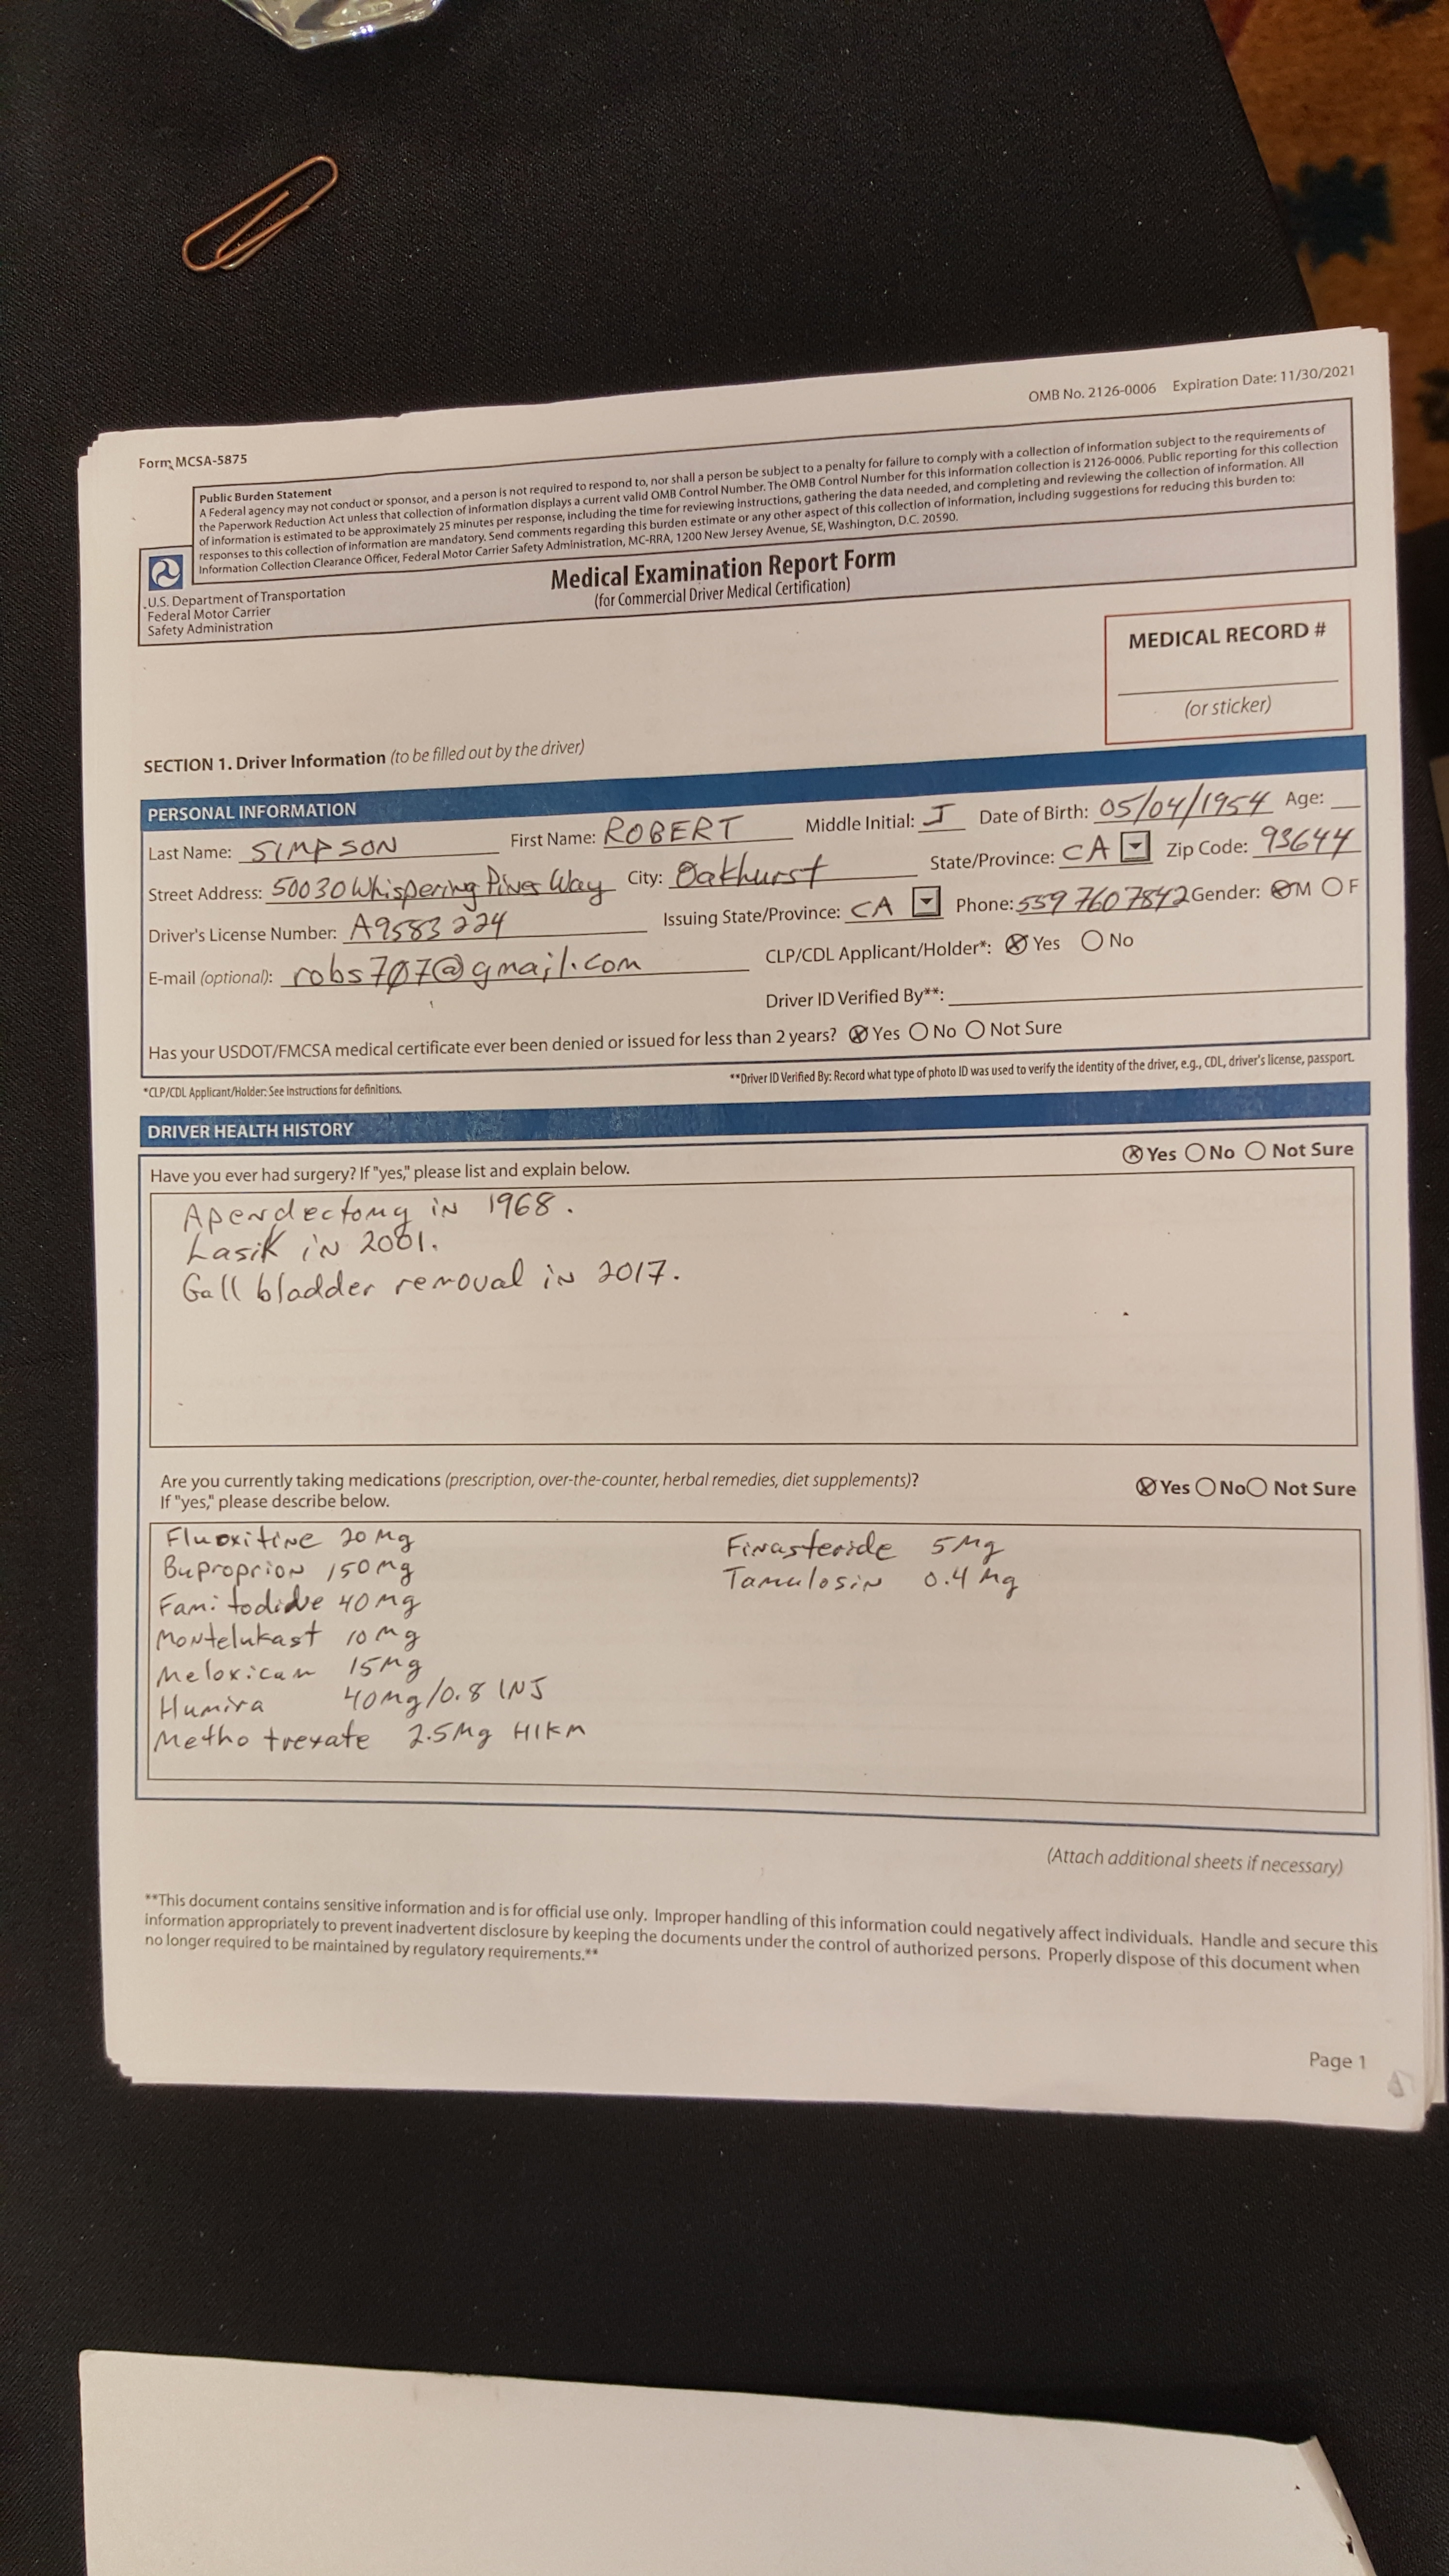 OMB No. 2126-0006 Expiration Date: 11/30/2021
Form MCSA-5875
Public Burden Statement
A Federal agency may not conduct or sponsor, and a person is not required to respond to, nor shall a person be subject to a penalty for failure to comply with a collection of information subject to the requirements of
the Paperwork Reduction Act unless that collection of information displays a current valid OMB Control Number. The OMB Control Number for this information collection is 2126-0006. Public reporting for this collection
of information is estimated to be approximately 25 minutes per response, including the time for reviewing instructions, gathering the data needed, and completing and reviewing the collection of information. All
responses to this collection of information are mandatory. Send comments regarding this burden estimate or any other aspect of this collection of information, including suggestions for reducing this burden to:
Information Collection Clearance Officer, Federal Motor Carrier Safety Administration, MC-RRA, 1200 New Jersey Avenue, SE, Washington, D.C. 20590.
U.S. Department of Transportation
Federal Motor Carrier
Safety Administration
Medical Examination Report Form
(for Commercial Driver Medical Certification)
MEDICAL RECORD #
(or sticker)
SECTION 1. Driver Information (to be filled out by the driver)
PERSONAL INFORMATION
Last Name: SIMPSON First Name: ROBERT Middle Initial: J Date of Birth: 05/04/1954 Age:
Street Address: 50030 Whispering Pines Way City: Oakhurst State/Province: CA Zip Code: 93644
Driver's License Number: A9583224 Issuing State/Province: CA Phone: 559 760 7842 Gender: M F
E-mail (optional): robs707@gmail.com CLP/CDL Applicant/Holder*: Yes No
Driver ID Verified By**:
Has your USDOT/FMCSA medical certificate ever been denied or issued for less than 2 years? Yes No Not Sure
*CLP/CDL Applicant/Holder: See Instructions for definitions. **Driver ID Verified By: Record what type of photo ID was used to verify the identity of the driver, e.g., CDL, driver's license, passport.
DRIVER HEALTH HISTORY
Have you ever had surgery? If "yes," please list and explain below. Yes No Not Sure
Apendectomy in 1968.
Lasik in 2001.
Gall bladder removal in 2017.
Are you currently taking medications (prescription, over-the-counter, herbal remedies, diet supplements)? Yes No Not Sure
If "yes," please describe below.
Fluoxitine 20 Mg
Buproprion 150 Mg
Famitodide 40 Mg
Montelukast 10 Mg
Meloxicam 15 Mg
Humira 40 Mg/0.8 INJ
Methotrexate 2.5 Mg HIKM
Finasteride 5 Mg
Tamulosin 0.4 Mg
(Attach additional sheets if necessary)
**This document contains sensitive information and is for official use only. Improper handling of this information could negatively affect individuals. Handle and secure this
information appropriately to prevent inadvertent disclosure by keeping the documents under the control of authorized persons. Properly dispose of this document when
no longer required to be maintained by regulatory requirements.**
Page 1